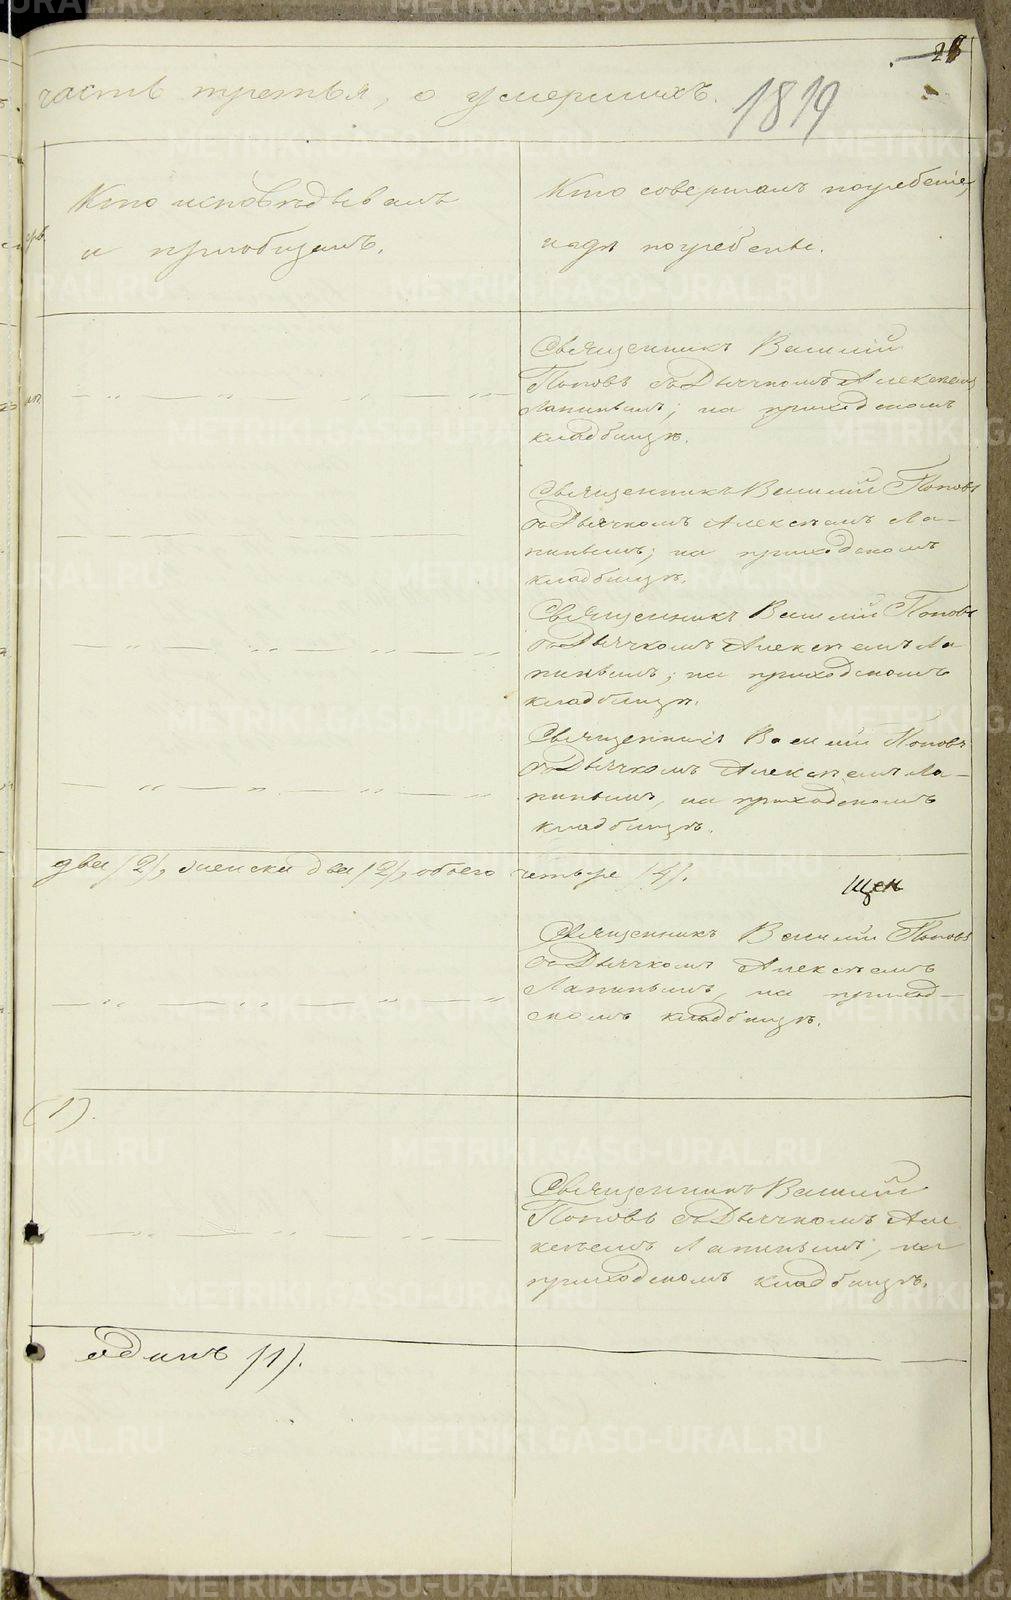 28
часть третья, о умершихъ.
1819
Кто исповѣдывалъ
и пріобщалъ.
Кто совершалъ погребеніе,
и гдѣ погребены.
Священникъ Василій
Поповъ съ Дьячкомъ Алексѣемъ
Лапинымъ; на приходскомъ
кладбищѣ.
Священникъ Василій Поповъ
съ Дьячкомъ Алексѣемъ Ла-
пинымъ; на приходскомъ
кладбищѣ.
Священникъ Василій Поповъ
съ Дьячкомъ Алексѣемъ Ла
пинымъ; на приходскомъ
кладбищѣ.
Священникъ Василій Поповъ
съ Дьячкомъ Алексѣемъ Ла-
пинымъ, на приходскомъ
кладбищѣ.
два (2), женска два (2), обоего четыре (4).
Священникъ Василій Поповъ
съ Дьячкомъ Алексѣемъ
Лапинымъ, на приход-
скомъ кладбищѣ.
(1).
Священникъ Василій
Поповъ съ Дьячкомъ Але
ксѣемъ Лапинымъ, на
приходскомъ кладбищѣ.
одинъ (1).
METRIKI.GASO-URAL.RU